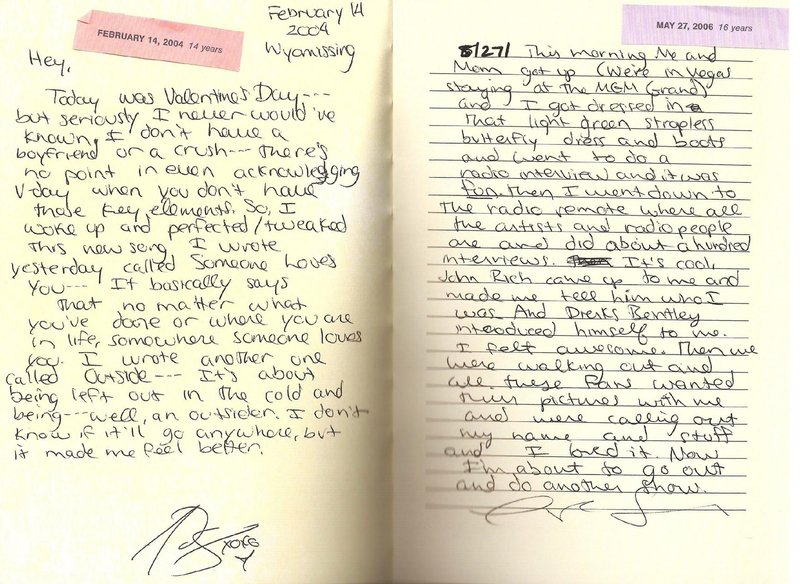 FEBRUARY 14, 2004 14 years
February 14
2004
Wyomissing
Hey,
Today was Valentine's Day---
but seriously I never would've
known, I don't have a
boyfriend or a crush--- there's
no point in even acknowlegging
V-day when you don't have
those key elements. So, I
woke up and perfected/tweaked
this new song I wrote
yesterday called Someone Loves
you--- It basically says
that no matter what
you've done or where you are
in life, somewhere someone loves
you. I wrote another one
called Outside--- It's about
being left out in the cold and
being---well, an outsider. I don't
know if it'll go anywhere, but
it made me feel better.
xoxo
MAY 27, 2006 16 years
5/27/ This morning Me and
Mom got up (we're in Vegas
staying at the MGM Grand)
and I got dressed in
that light green strapless
butterfly dress and boots
and went to do a
radio interview and it was
fun. Then I went down to
the radio remote where all
the artists and radio people
are and did about a hundred
interviews. It's cool,
John Rich came up to me and
made me tell him who I
was. And Dierks Bentley
introduced himself to me.
I felt awesome. Then we
were walking out and
all these fans wanted
their pictures with me
and were calling out
my name and stuff
and I loved it. Now
I'm about to go out
and do another show.